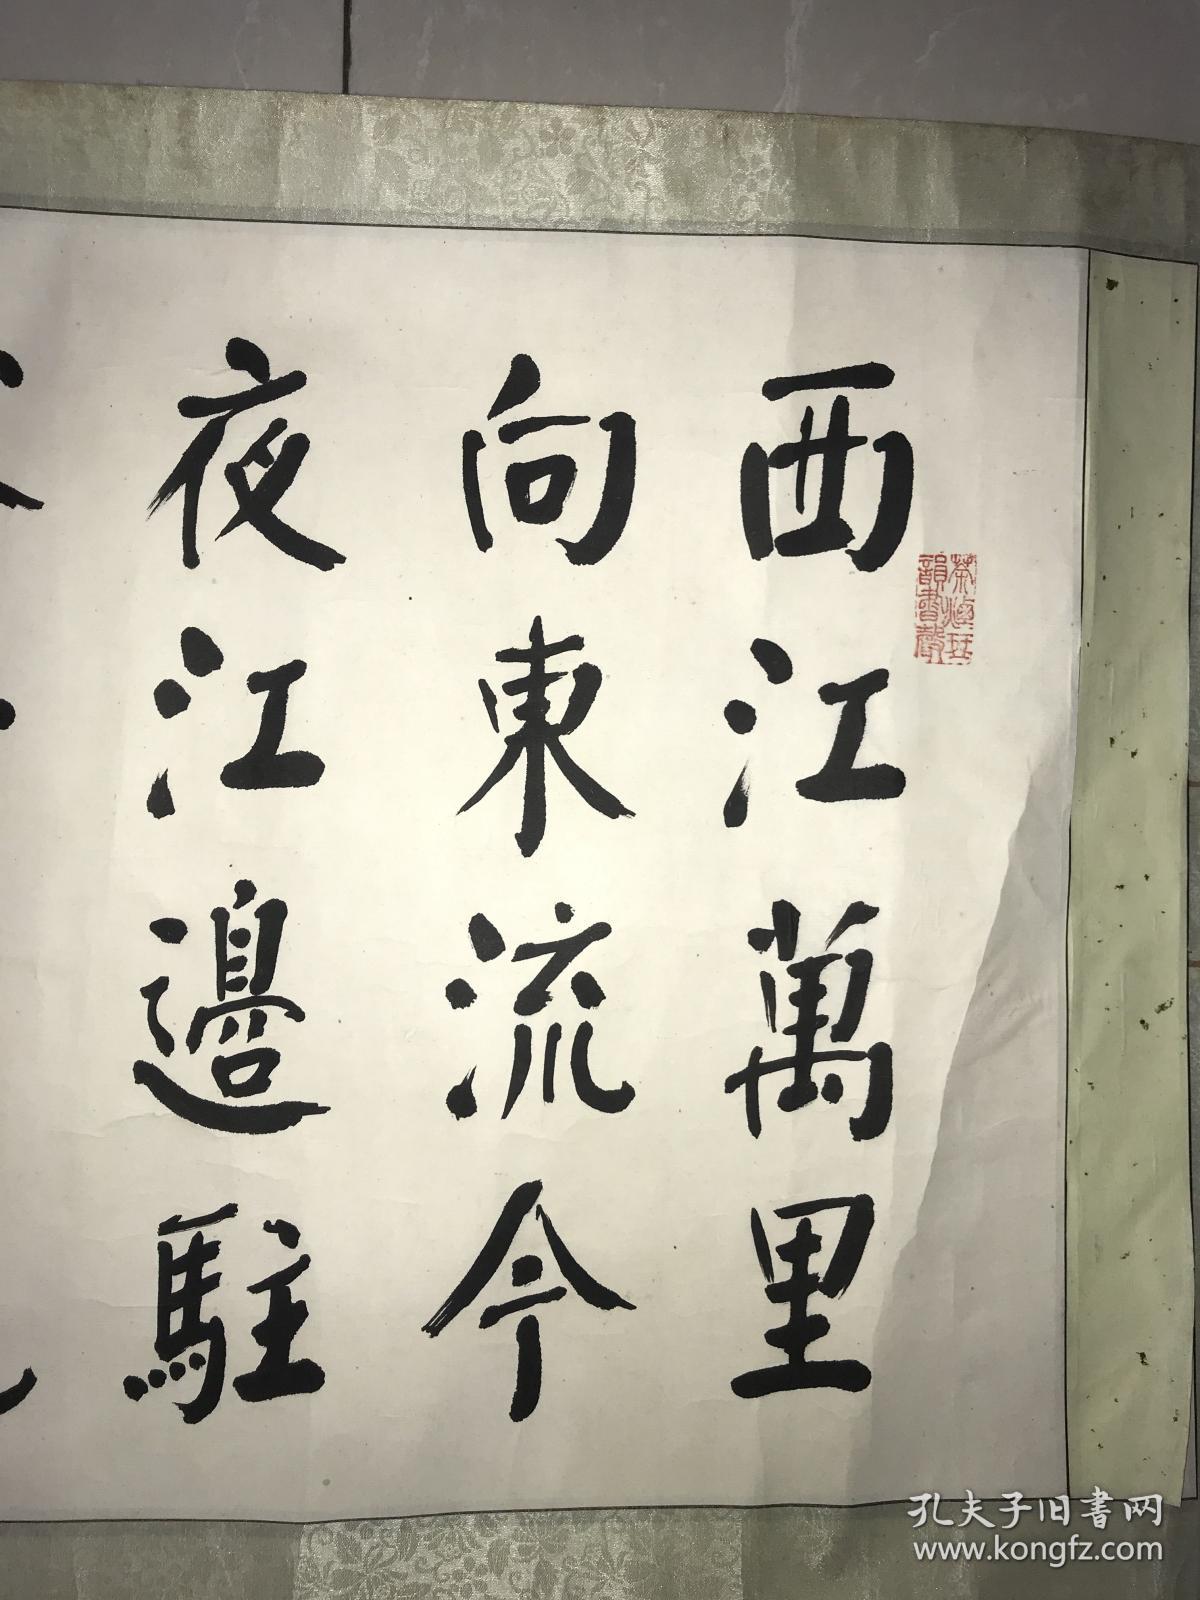 西江萬里
向東流今
夜江邊駐
茶煙琴
韻書聲
孔夫子旧書网
www.kongfz.com